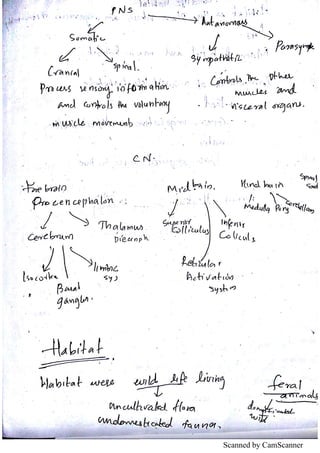 PNS
Somatic
Autonomous
Cranial
spinal.
Sympathetic
Parasymp
Process sensory information
and controls the voluntary
muscle movement
Controls the other
muscles and
visceral organs.
CN.
Fore brain
Procencephalon
Midbrain.
Hind brain
Spinal
Medulla Pons Cerebellum
Cerebrum
Thalamus
Dienceph
Superior
Colliculus
Inferior
Colicul
Isocortex
Basal
ganglia.
limbic
sys
Reticular
Activation
system
Habitat.
Habitat were wild life living
uncultivated flora
undomesticated fauna.
feral
animals
domesticated
wild
Scanned by CamScanner